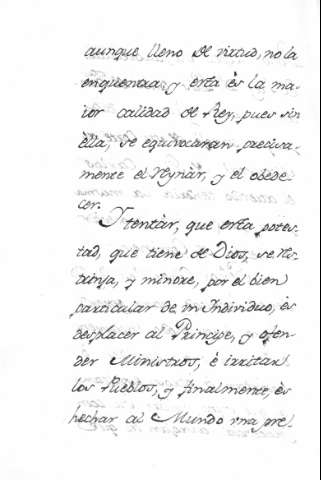 aunque lleno de virtud, no la
enqüentra; y esta ès la ma-
ior calidad de Rey, pues sin
èlla, se equivocaran precisa-
mente el reynàr, y el obede-
cer.
Y tentàr, que esta potes-
tad, que tiene de Dios, se res-
trinja, y minore, por el bien
particular de un Individuo, ès
desplacer al Principe, y ofen-
der Ministros, è irritar
los Pueblos, y finalmente, ès
hechar al Mundo una pre-